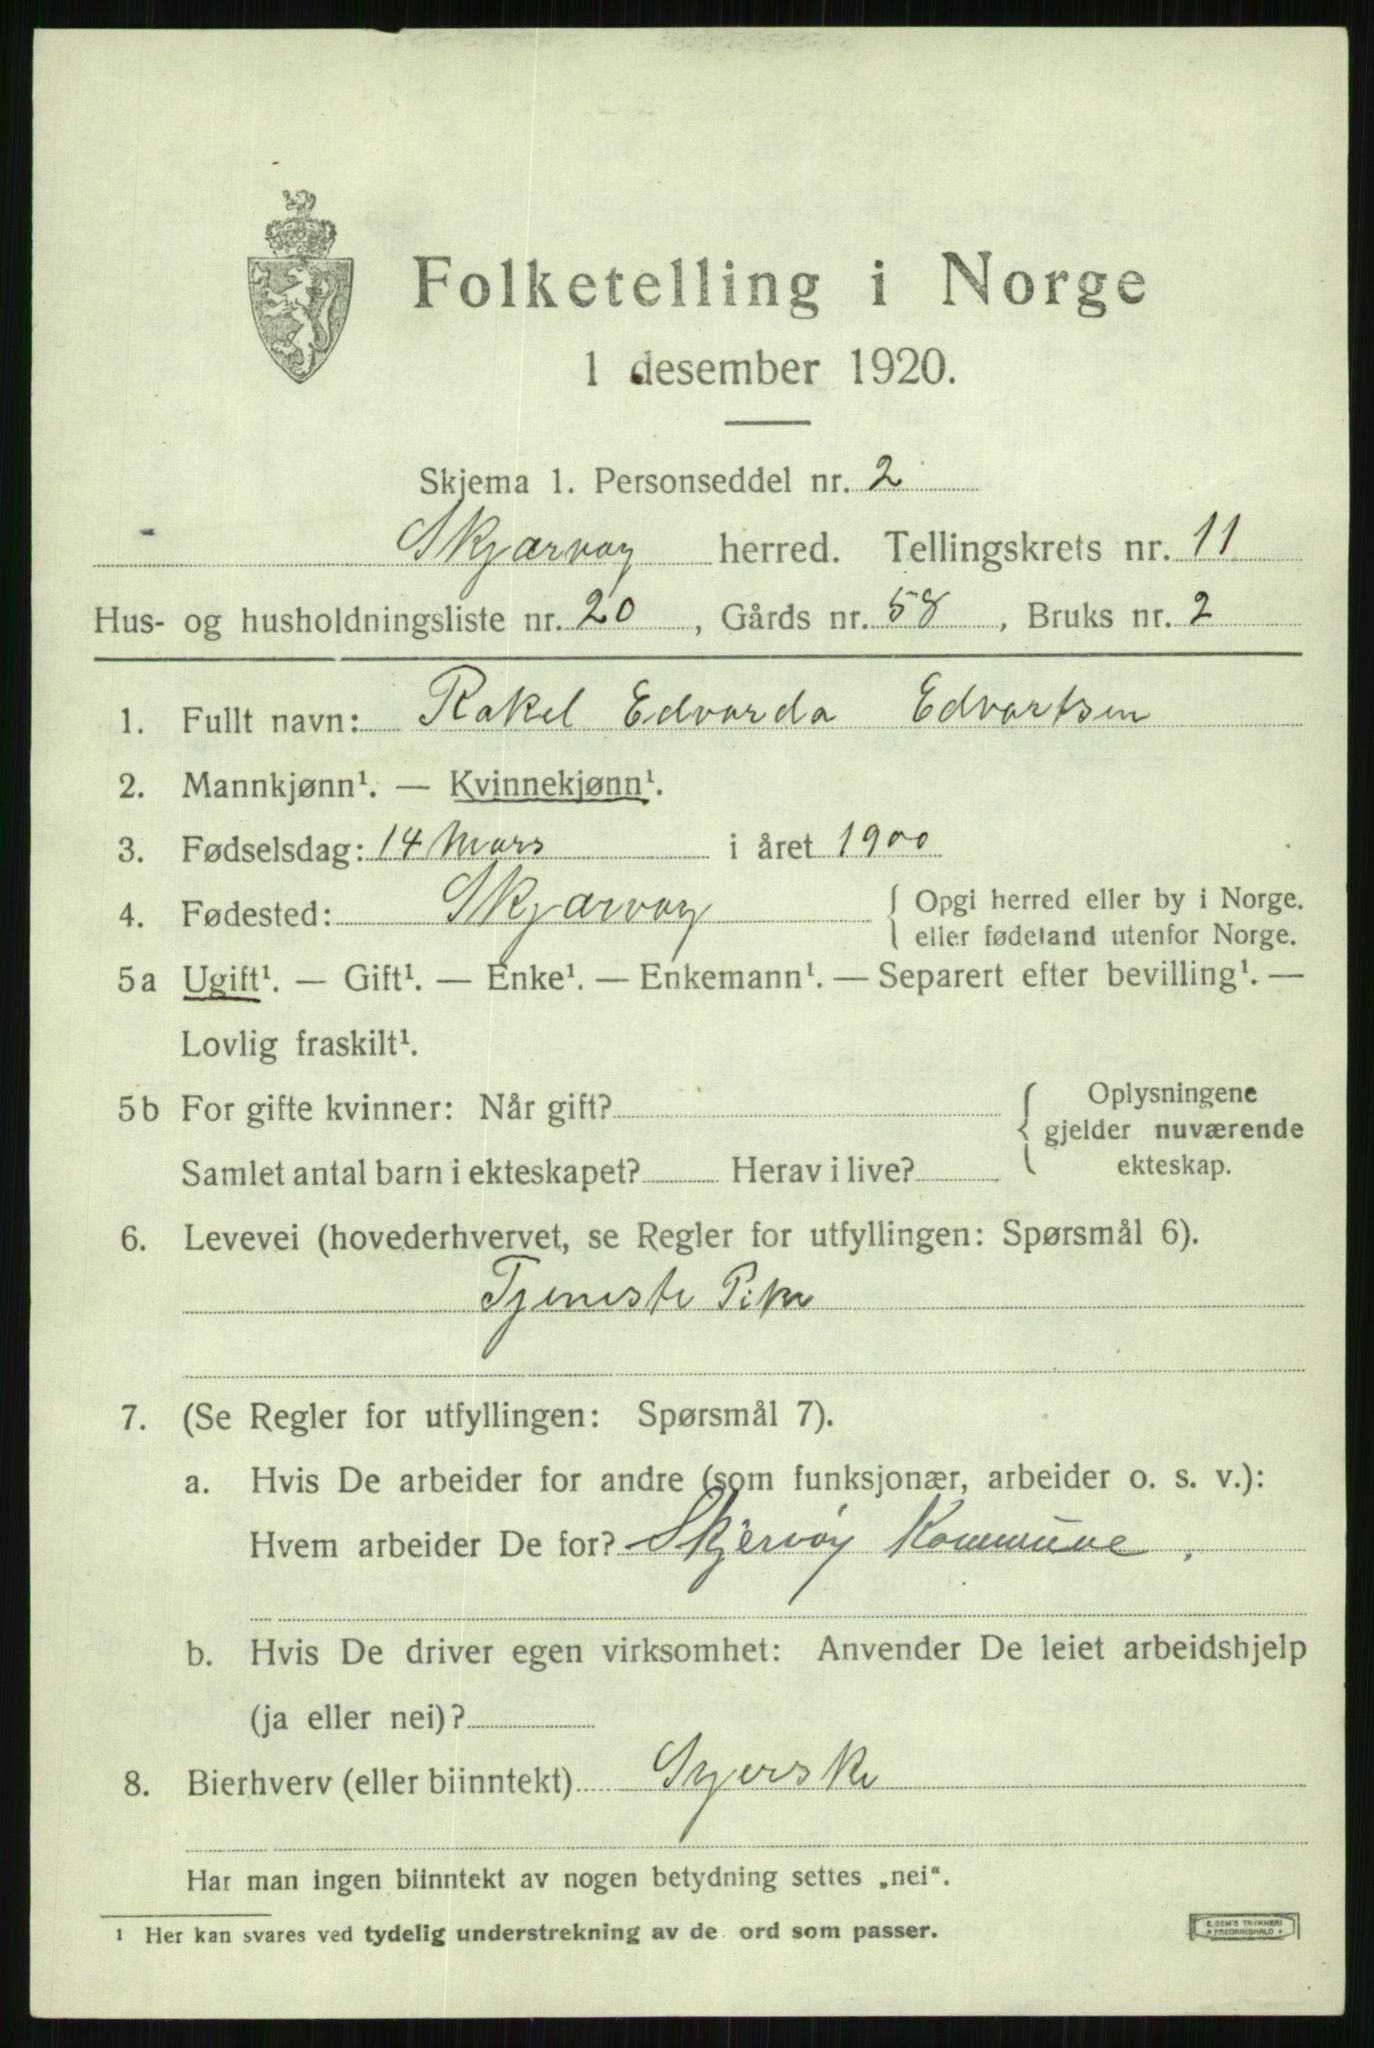 Folketelling i Norge
1 desember 1920.
Skjema 1. Personseddel nr. 2
Skjærvøy herred. Tellingskrets nr. 11
Hus- og husholdningsliste nr. 20, Gårds nr. 58, Bruks nr. 2
1. Fullt navn: Rakel Edvarda Edvartsen
2. Mannkjønn¹. — Kvinnekjønn¹.
3. Fødselsdag: 14 Mars i året 1900
4. Fødested: Skjærvøy { Opgi herred eller by i Norge.
eller fødeland utenfor Norge.
5a Ugift¹. — Gift¹. — Enke¹. — Enkemann¹. — Separert efter bevilling¹. —
Lovlig fraskilt¹.
5b For gifte kvinner: Når gift? { Oplysningene
gjelder nuværende
ekteskap.
Samlet antal barn i ekteskapet? Herav i live?
6. Levevei (hovederhvervet, se Regler for utfyllingen: Spørsmål 6).
Tjeneste Pike
7. (Se Regler for utfyllingen: Spørsmål 7).
a. Hvis De arbeider for andre (som funksjonær, arbeider o. s. v.):
Hvem arbeider De for? Skjervøy Kommune.
b. Hvis De driver egen virksomhet: Anvender De leiet arbeidshjelp
(ja eller nei)?
8. Bierhverv (eller biinntekt) Syerske
Har man ingen biinntekt av nogen betydning settes „nei“.
¹ Her kan svares ved tydelig understrekning av de ord som passer.
E. SEM'S TRYKKERI
FREDRIKSHALD